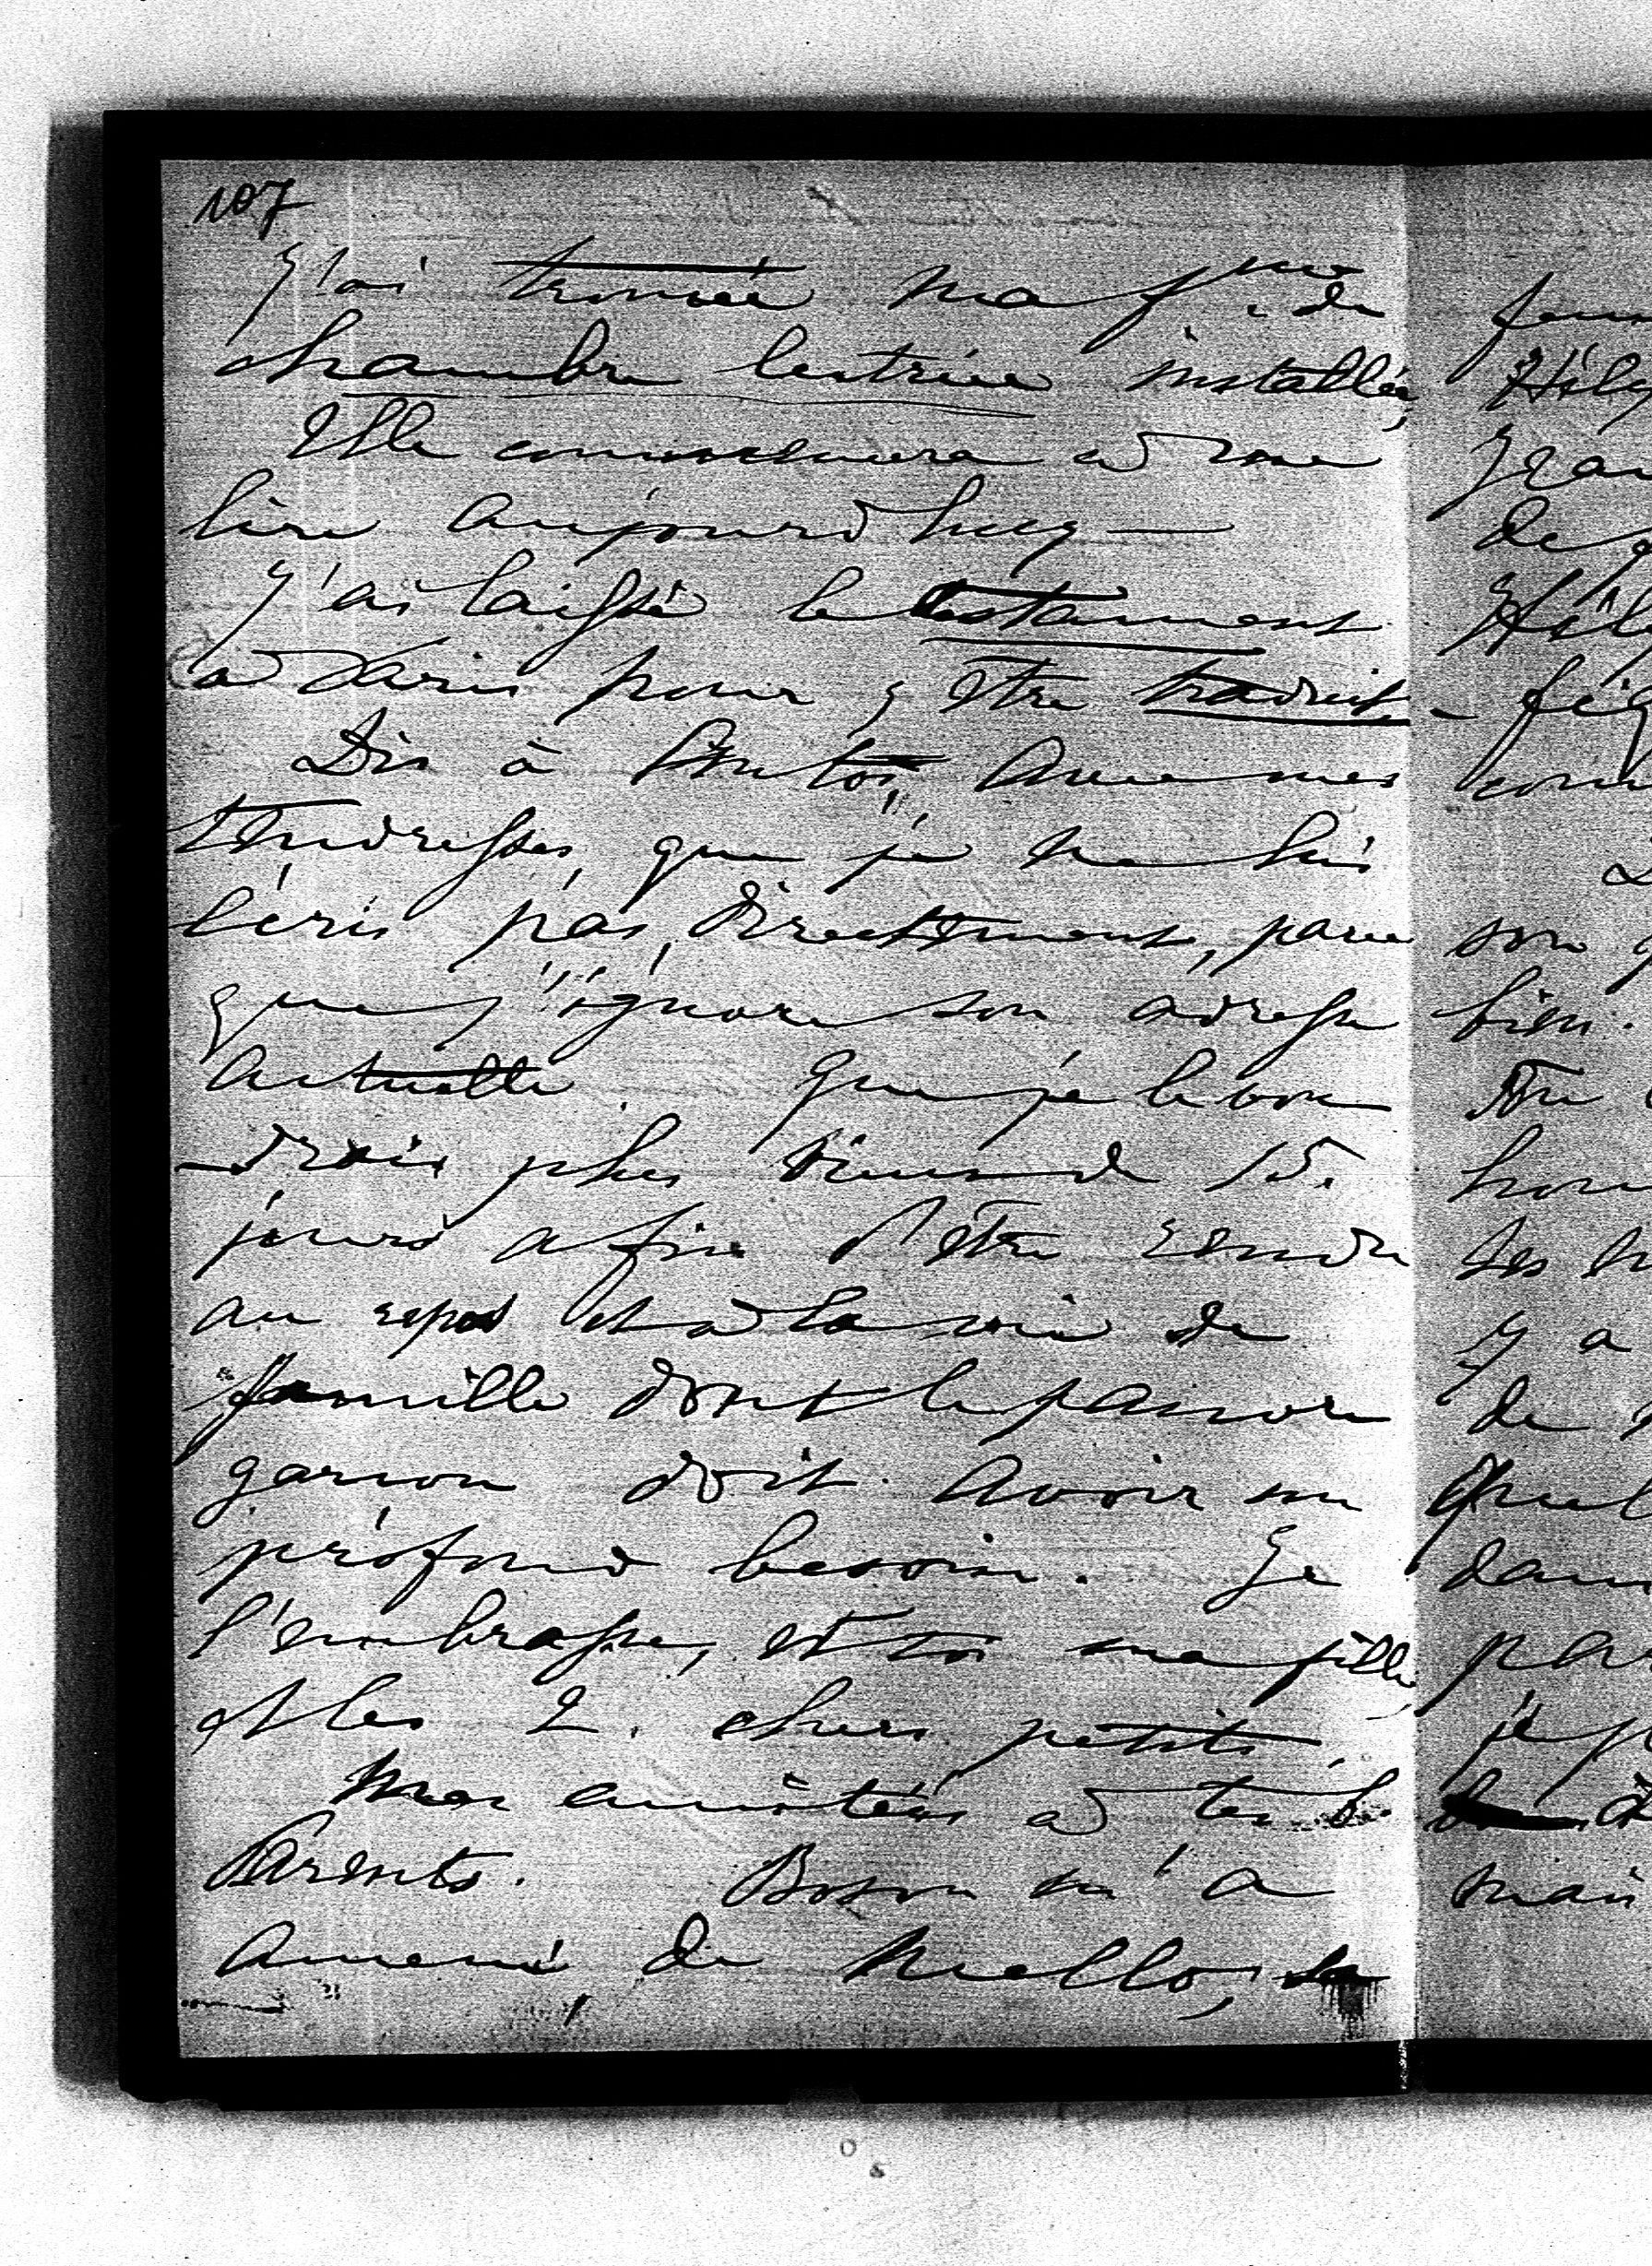 107
J'ai trouvé ma fme de
chambre lectrice installée,
Elle commencera à me
lire aujourd'huy —
J'ai laissé le testament
à Paris pour y être traduit –
Dis à Antoi, avec mes
tendresses, que je ne lui
écris pas, directement, parce
que j'ignore son adresse
actuelle. Que je le vou
-drais plus vieux de 15.
jours afin d'être rendu
au repos et à la vie de
famille dont le pauvre
garçon doit avoir un
profond besoin. Je
l'embrasse, et toi ma fille,
et les 2. chers petits.
Mes amitiés à tes
Parents. Boson m'a
amené de Mello,